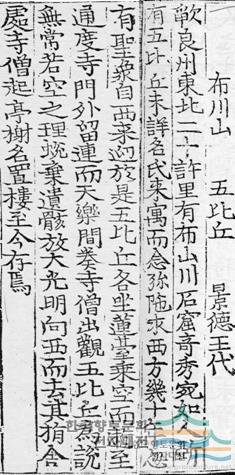 布川山 五比丘 景德王代
歃良州東北二十許里有布山川石窟奇秀宛如人
有五比丘未詳名氏來寓而念弥陁求西方幾十
有聖衆自西來迎於是五比丘各坐蓮臺乗空而至
通度寺門外留連而天樂間奏寺僧出觀五比丘爲說
無常苦空之理蛻棄遺骸放大光明向西而去其捐舍
處寺僧起亭榭名置樓至今存焉